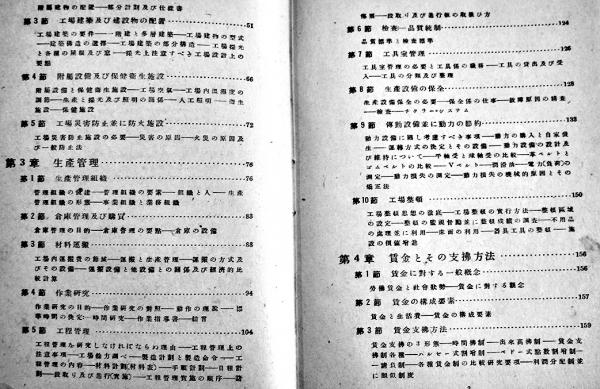 附屬建物の配置——部分計劃及び仕樣書
第3節 工場建築及び建設物の配置 51
工場建築の要件——階建と多層建築——工場建物の型式
——建築構造の選擇——工場建築の部分構造——工場採光
と各種の屋根及び窓——採光上注意すべき工場設計上の
要點
第4節 附屬設備及び保健衞生施設 66
附屬設備と保健衞生施設——工場空氣——工場內温濕度の
調節——生產と採光及び照明の關係——人工照明——衞生
施設——保健施設
第5節 工場災害防止並に防火施設 72
工場災害防止施設の必要——災害の原因——火災の原因及
び一般防止法
第3章 生產管理 76
第1節 生產管理組織 76
管理組織の史的——管理組織の要素——組織と人——生產
管理組織の形態——事業組織と業務組織
第2節 倉庫管理及び購買 83
倉庫管理の目的——倉庫管理の要點——倉庫の設備
第3節 材料運搬 88
工場內運搬費の節減——運搬と生產管理——運搬の方式及
びその設備——運搬設備と他設備との關係及び經濟的比
較計算
第4節 作業硏究 94
作業硏究の目的——作業硏究の對照——動作の理論——標
準時間の決定——時間硏究——作業指導書——給育
第5節 工程管理 104
工程管理を硏究しなければならぬ理由——工程管理上の
注意事項——工場能力調べ——製造計劃と製造命令——工
程管理の內容——材料計劃(材料表)——手順計劃——日程計
劃——段取り及び進行(實施)——工程管理實施の順序——諸
傳票——段取り及び進行板の取扱ひ方 124
第6節 檢査——品質統制
品質標準と檢査標準
第7節 工具室管理 126
工具室管理の必要と工具係の職務——工具の貸出及び受
入——工具の分類及び整理
第8節 生產設備の保全 128
生產設備保全の必要——保全係の仕事——故障原因の精査
——檢査——テクラーシステム
第9節 傳動設備並に動力の節約 133
動力設備に關して考慮すべき事項——動力の購入と自家發
生——運轉方式の決定とその設備——動力設備の設計及
び維持について——平軸受と球軸受の比較——革ベルトと
ゴムベルトの比較——Vベルト——潤滑油——電力(負荷)の
測定——動力損失の測定——動力損失の機械的原因とその
矯正法
第10節 工場整頓 150
工場整頓思想の徹底——工場整頓の實行方法——整頓區域
の設定——整頓の監視督勵並に整頓成績の調査——不用品
の處理並に利用——床面の利用——器具工具の整頓——施
設の價値增進
第4章 賃金とその支拂方法 156
第1節 賃金に對する一般槪念 156
勞働賃金と社會狀勢——賃金に對する觀念
第2節 賃金の構成要素 157
賃金と生活費——賃金の構成要素
第3節 賃金支拂方法 159
賃金支拂の3形態——時間拂制——出來高拂制——賃金支
拂制各種——ハルセー式割增制——ベドー式點數割增制—
—請負制——各種賃金制の比較硏究要項——利潤分配制並
に類似制度